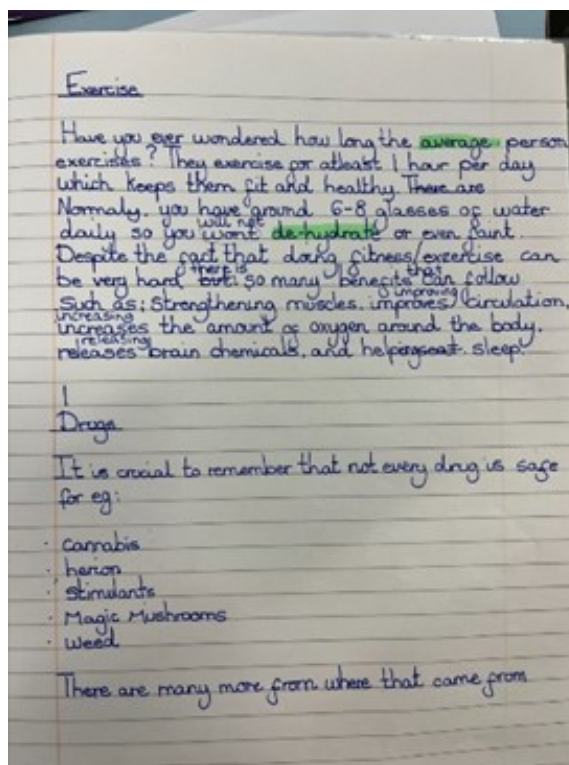 Exercise
Have you ever wondered how long the average person
exercises? They exercise for atleast 1 hour per day
which keeps them fit and healthy. There are
Normaly, you have around 6-8 glasses of water
will not
daily so you wont de-hydrate or even faint.
Despite the fact that doing fitness/exercise can
there is that
be very hard but so many benefits can follow
improving
such as; strengthening muscles, improves circulation,
increasing
increases the amount of oxygen around the body,
releasing
releases brain chemicals, and help sleep.
1
Drugs
It is crucial to remember that not every drug is safe
for eg:
· cannabis
· heroin
· stimulants
· Magic Mushrooms
· weed
There are many more from where that came from